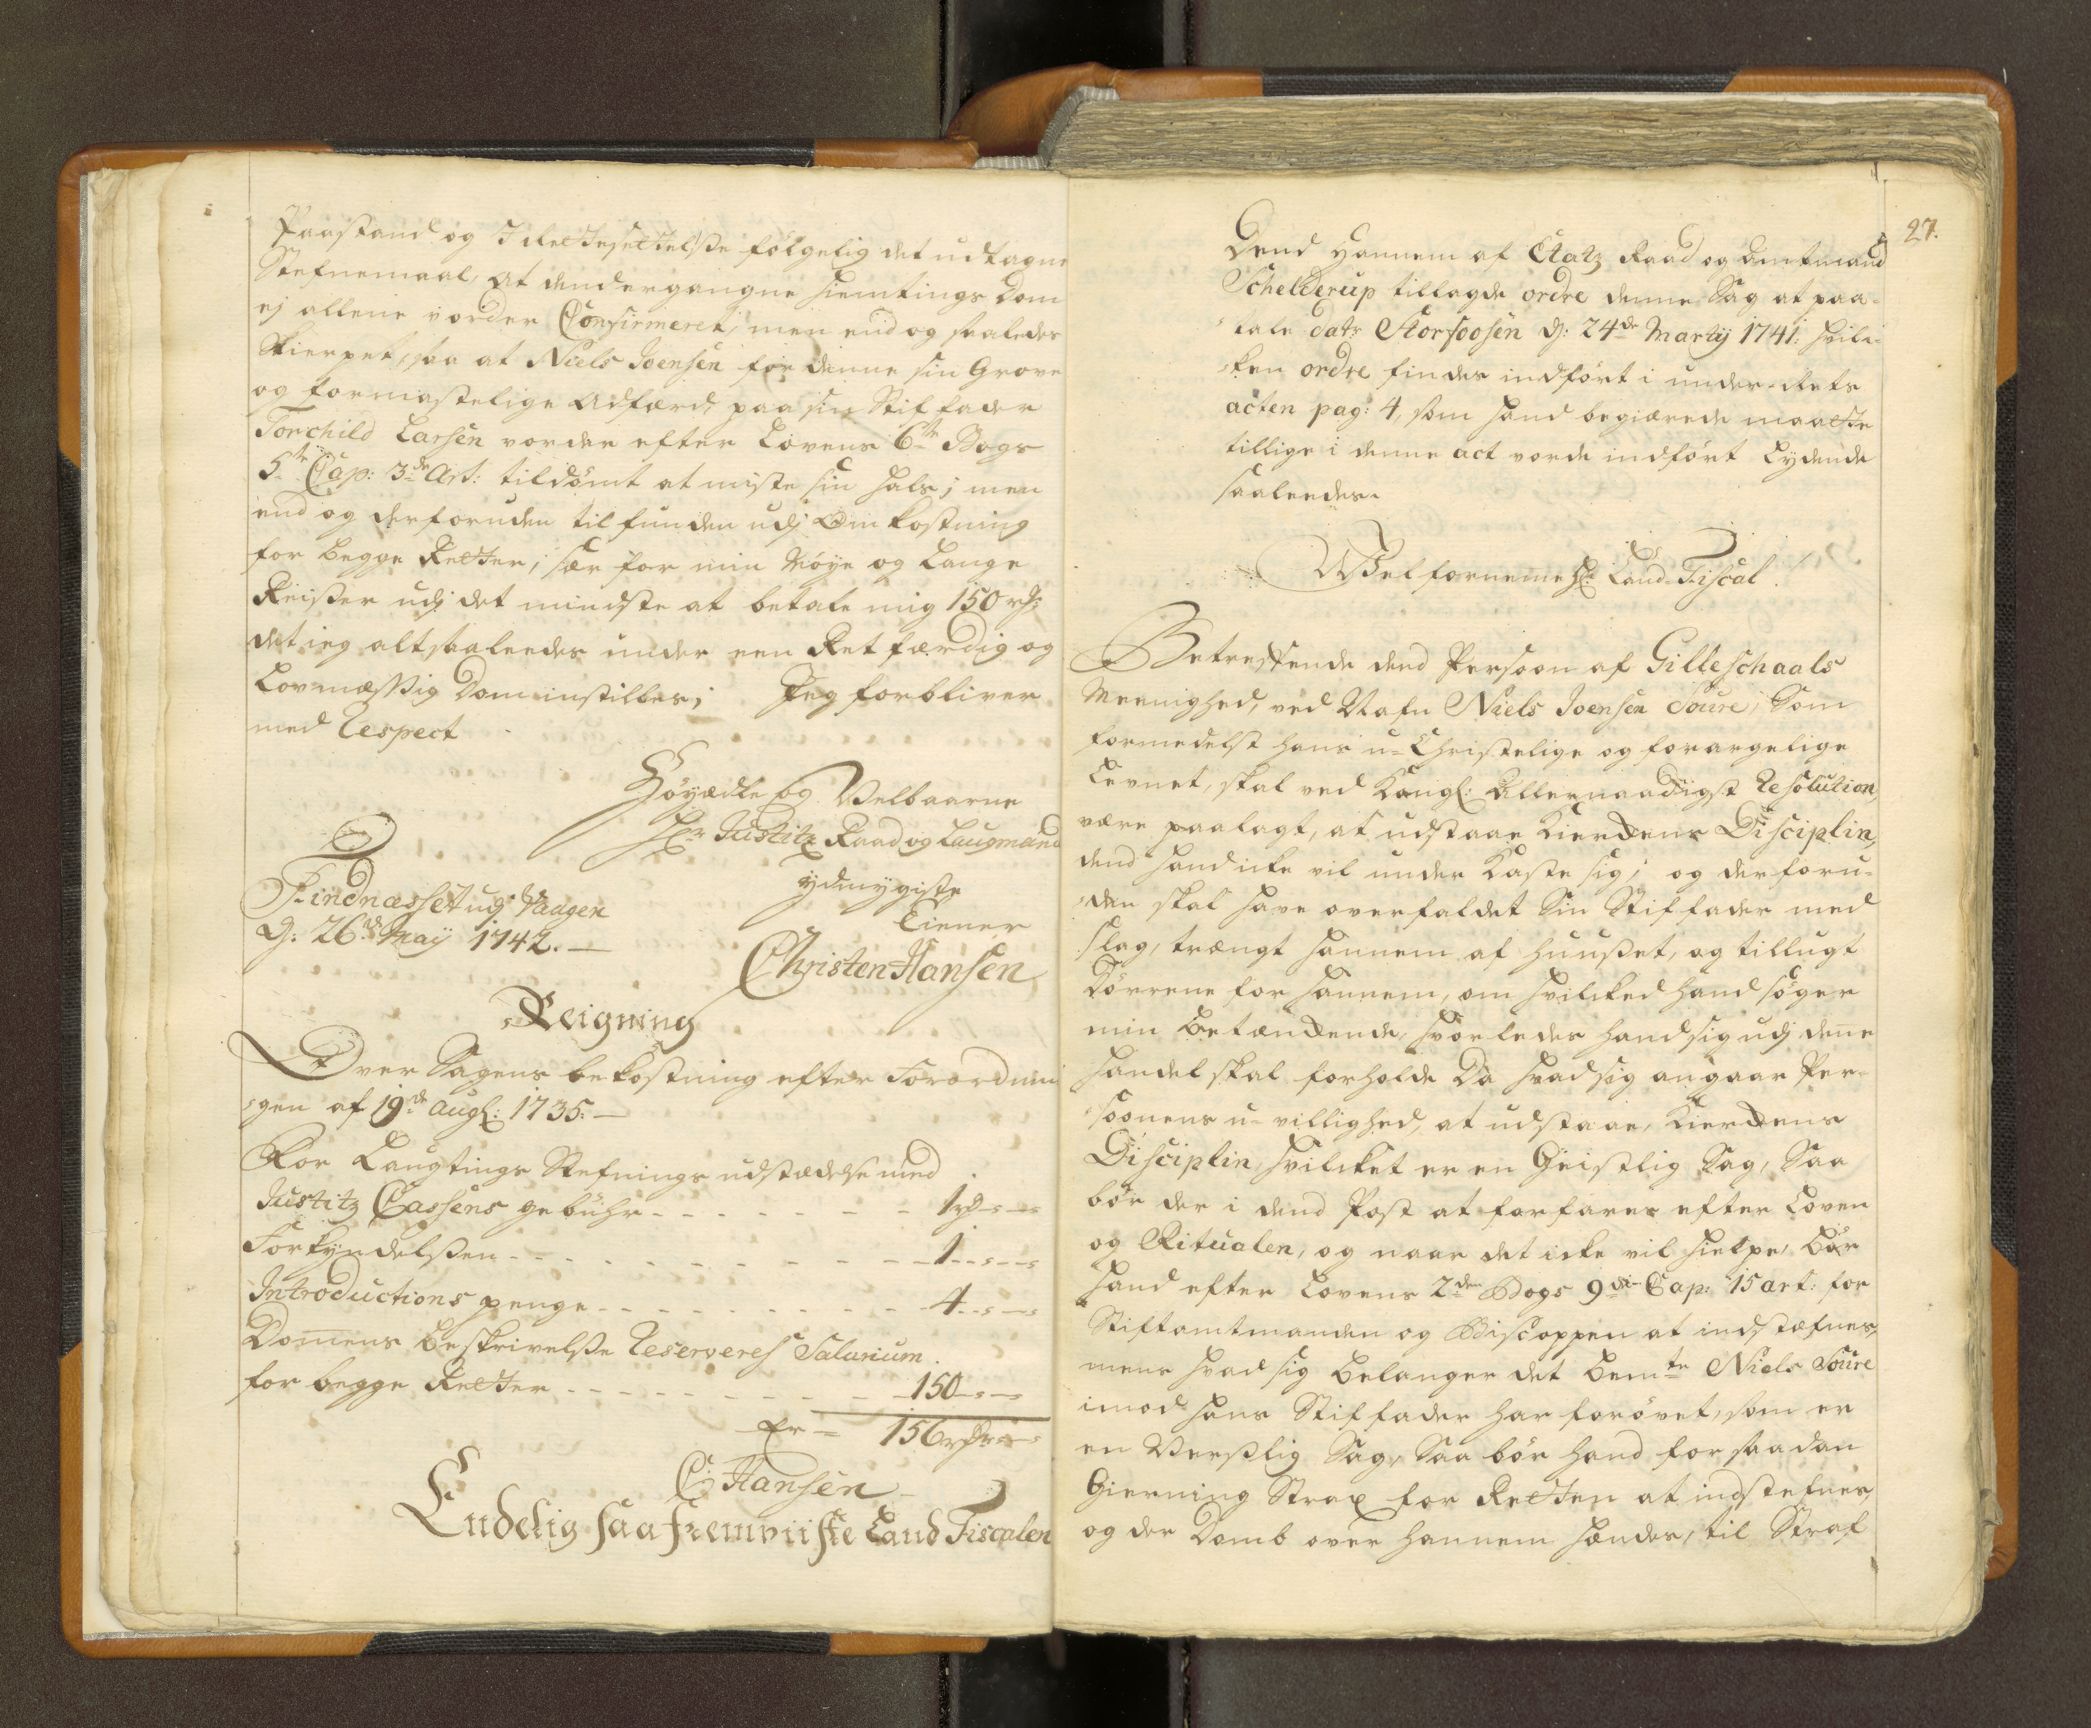 Paastand og I Rettesettelsse følgelig det udtagne
Stefnemaal, at dendergangne Hiemtings Dom
ej allene vorder Confirmeret, men end og saaledes
Skierpet, saa at Niels Joensen for denne sin Grove
og formastelige Adfærd, paa sin Stiffader
Torchild Larsen vorder efter Lovens 6te Bogs
5te Cap: 3de Art: tildømt at miste sin Hals; men
end og derforuden tilfunden udj Omkostning
for begge Retter, sær for min Møye og Lange
Reisser udj det mindste at betale mig 150 rdr:
det ieg alt saaleedes under een Retfærdig og
Lovmæssig Dom instilles; Jeg forbliver
med Respect
Høyædle og Velbaarne
Hr Justitz Raad og Laugmand
ydmygiste
Tiener
Findnæsset udj Vaagen
d: 26de Maij 1742.
Christen Hansen
Reigning
Over Sagens bekostning efter Forordnin-
gen af 19de Aug: 1735.
For Laugtings Stefnings udstædelse med
Justitz Cassens gebühr - - - - - - 1 rd - -
Forkyndelssen - - - - - - - - 1 - -
Introductions penge - - - - - - - 4 - -
Domens Beskrivelsse Reserveres Salarium
for begge Retter - - - - - - - 150 - -
Er - 156 rdr - -
C: Hansen
Endelig saa fremviiste Land Fiscalen
27.
Dend Hannem af Etatz Raad og Amtmand
Schelderup tillagde ordre denne Sag at paa-
tale datr Storfoosen d: 24de Martij 1741: hvil-
ken ordre findes indført i under-Rets
acten pag: 4, som hand begiærede maatte
tillige i denne act vorde indført Lydende
saaleedes.
Welforneme Hr Land-Fiscal!
Betreffende dend Persoon af Gilleschaals
Meenighed, ved Nafn Niels Joensen Soure, Som
formedelst hans u-Christelige og forargelige
Levnet, skal ved Kongl: Allernaadigst Resolution,
være paalagt, at udstaae Kierkens Disciplin,
dend hand icke vil under Kaste sig; og derforu-
den skal have overfaldet Sin Stiffader med
slag, trængt hannem af Huusset, og tillugt
Dørrene for hannem, om hvilcked hand søger
min Betænkende, hvorledes hand sig udj denne
Handel skal forholde Da hvad sig angaar Per-
soonens u-villighed, at udstaae, Kierkens
Disciplin hvilcket er en Geistlig Sag, Saa
bør der i dend Post at forfares efter Loven
og Ritualen, og naar det icke vil hielpe, bør
hand efter Lovens 2den Bogs 9de Cap: 15 art: for
Stiftamtmanden og Biscoppen at indstæfnes,
mens hvad sig belanger det bemte Niels Soure
imod hans Stiffader har forøvet, som er
en Verslig Sag, Saa bør hand for saadan
Gierning Strax for Retten at indstefnes,
og der Domb over hannem hændes, til Straf